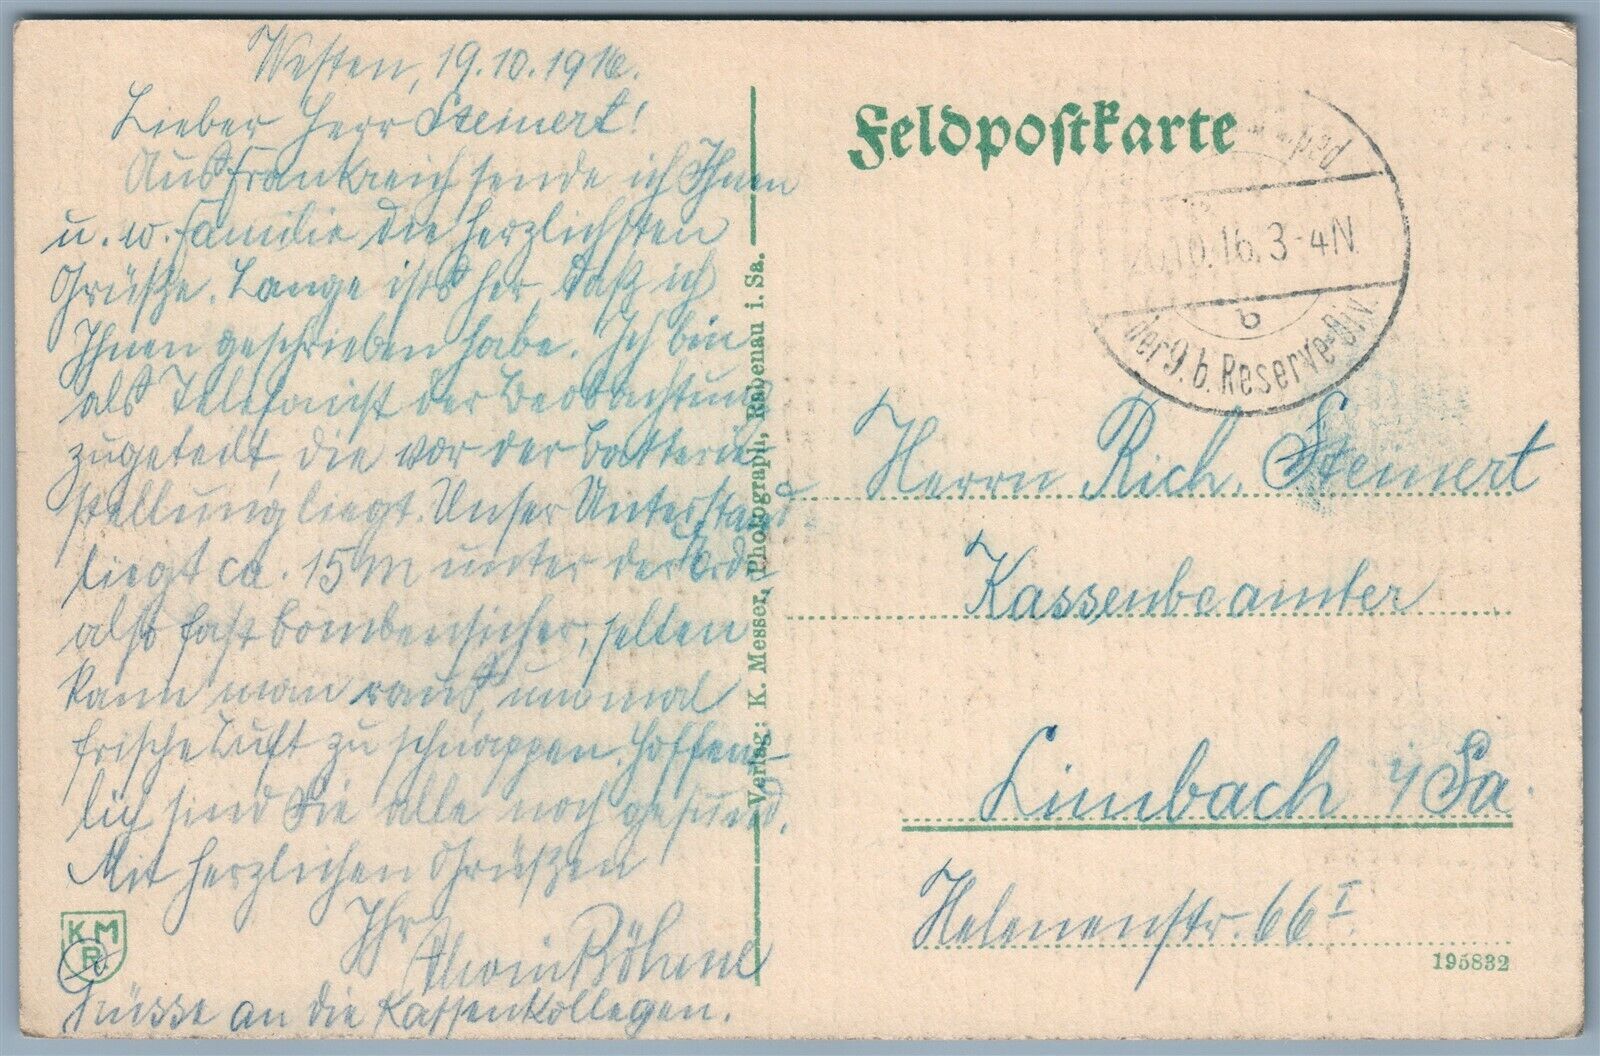 Westen, 19.10.1916.
Lieber Herr Steinert!
Aus Frankreich sende ich Ihnen
u. w. Familie die herzlichsten
Grüße. Lange ists her, daß ich
Ihnen geschrieben habe. Ich bin
als Telefonist der Beobachtung
zugeteilt, die vor der Batterie-
stellung liegt. Unser Unterstand
liegt ca. 15 m unter der Erde
also fast bombensicher, selten
kann man raus, um mal
frische Luft zu schnappen. Hoffent-
lich sind Sie alle noch gesund.
Mit herzlichen Grüßen
Ihr
Böhme
Grüsse an die Kassenkollegen.
K M
R.
Verlag: K. Messer, Photograph, Rabenau i. Sa.
Feldpostkarte
.10.16. 3-4N
b
der 9. b. Reserve-Div.
Herrn Rich. Steinert
Kassenbeamter
Limbach i/Sa.
Helenenstr. 66 I
195832